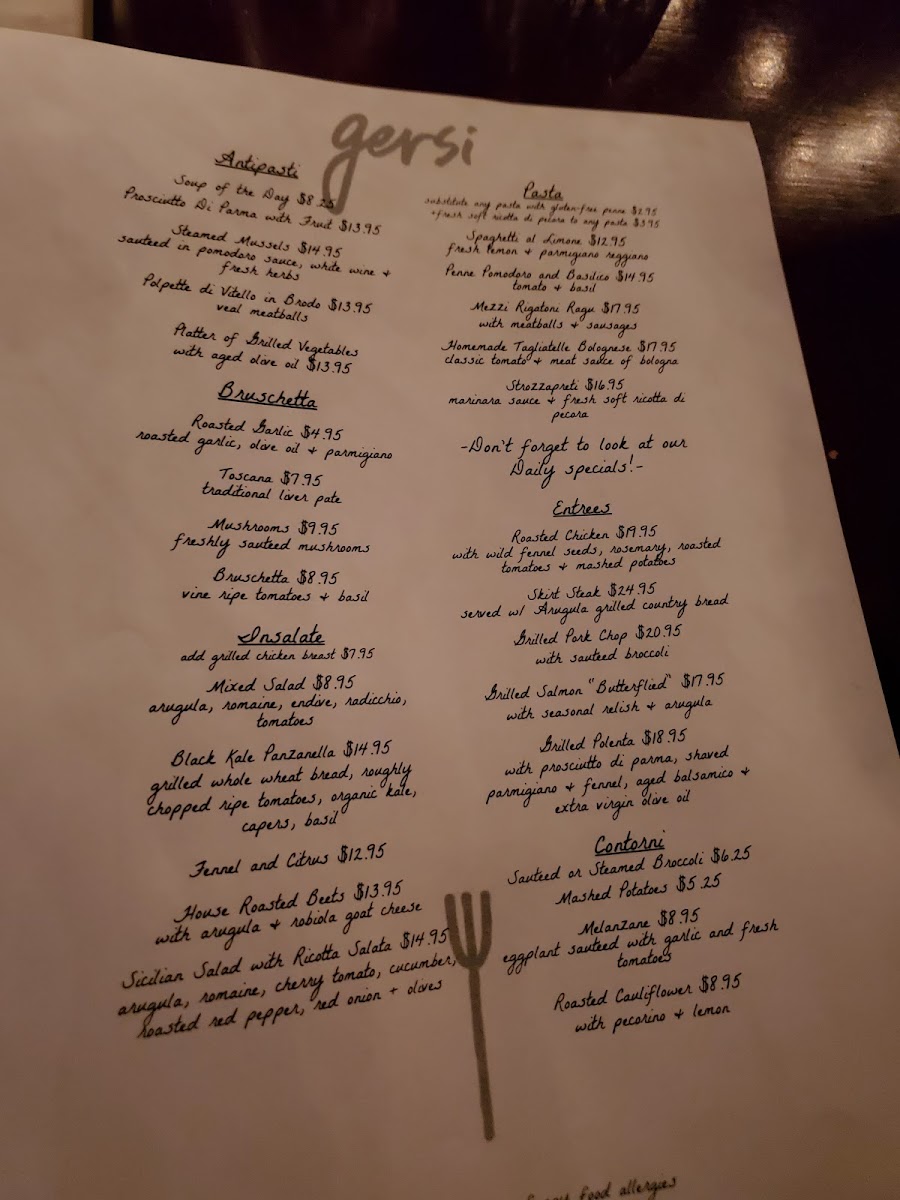 gersi
Antipasti
Soup of the Day $8.25
Prosciutto Di Parma with Fruit $13.95
Steamed Mussels $14.95
sauteed in pomodoro sauce, white wine +
fresh herbs
Polpette di Vitello in Brodo $13.95
veal meatballs
Platter of Grilled Vegetables
with aged olive oil $13.95
Bruschetta
Roasted Garlic $4.95
roasted garlic, olive oil + parmigiano
Toscana $7.95
traditional liver pate
Mushrooms $9.95
freshly sauteed mushrooms
Bruschetta $8.95
vine ripe tomatoes + basil
Insalate
add grilled chicken breast $7.95
Mixed Salad $8.95
arugula, romaine, endive, radicchio,
tomatoes
Black Kale Panzanella $14.95
grilled whole wheat bread, roughly
chopped ripe tomatoes, organic kale,
capers, basil
Fennel and Citrus $12.95
House Roasted Beets $13.95
with arugula + robiola goat cheese
Sicilian Salad with Ricotta Salata $14.95
arugula, romaine, cherry tomato, cucumber,
roasted red pepper, red onion + olives
Pasta
substitute any pasta with gluten-free penne $2.95
+fresh soft ricotta di pecora to any pasta $3.95
Spaghetti al Limone $12.95
fresh lemon + parmigiano reggiano
Penne Pomodoro and Basilico $14.95
tomato + basil
Mezzi Rigatoni Ragu $17.95
with meatballs + sausages
Homemade Tagliatelle Bolognese $17.95
classic tomato + meat sauce of bologna
Strozzapreti $16.95
marinara sauce + fresh soft ricotta di
pecora
-Don't forget to look at our
Daily specials!-
Entrees
Roasted Chicken $19.95
with wild fennel seeds, rosemary, roasted
tomatoes + mashed potatoes
Skirt Steak $24.95
served w/ Arugula grilled country bread
Grilled Pork Chop $20.95
with sauteed broccoli
Grilled Salmon "Butterflied" $17.95
with seasonal relish + arugula
Grilled Polenta $18.95
with prosciutto di parma, shaved
parmigiano + fennel, aged balsamico +
extra virgin olive oil
Contorni
Sauteed or Steamed Broccoli $6.25
Mashed Potatoes $5.25
Melanzane $8.95
eggplant sauteed with garlic and fresh
tomatoes
Roasted Cauliflower $8.95
with pecorino + lemon
food allergies